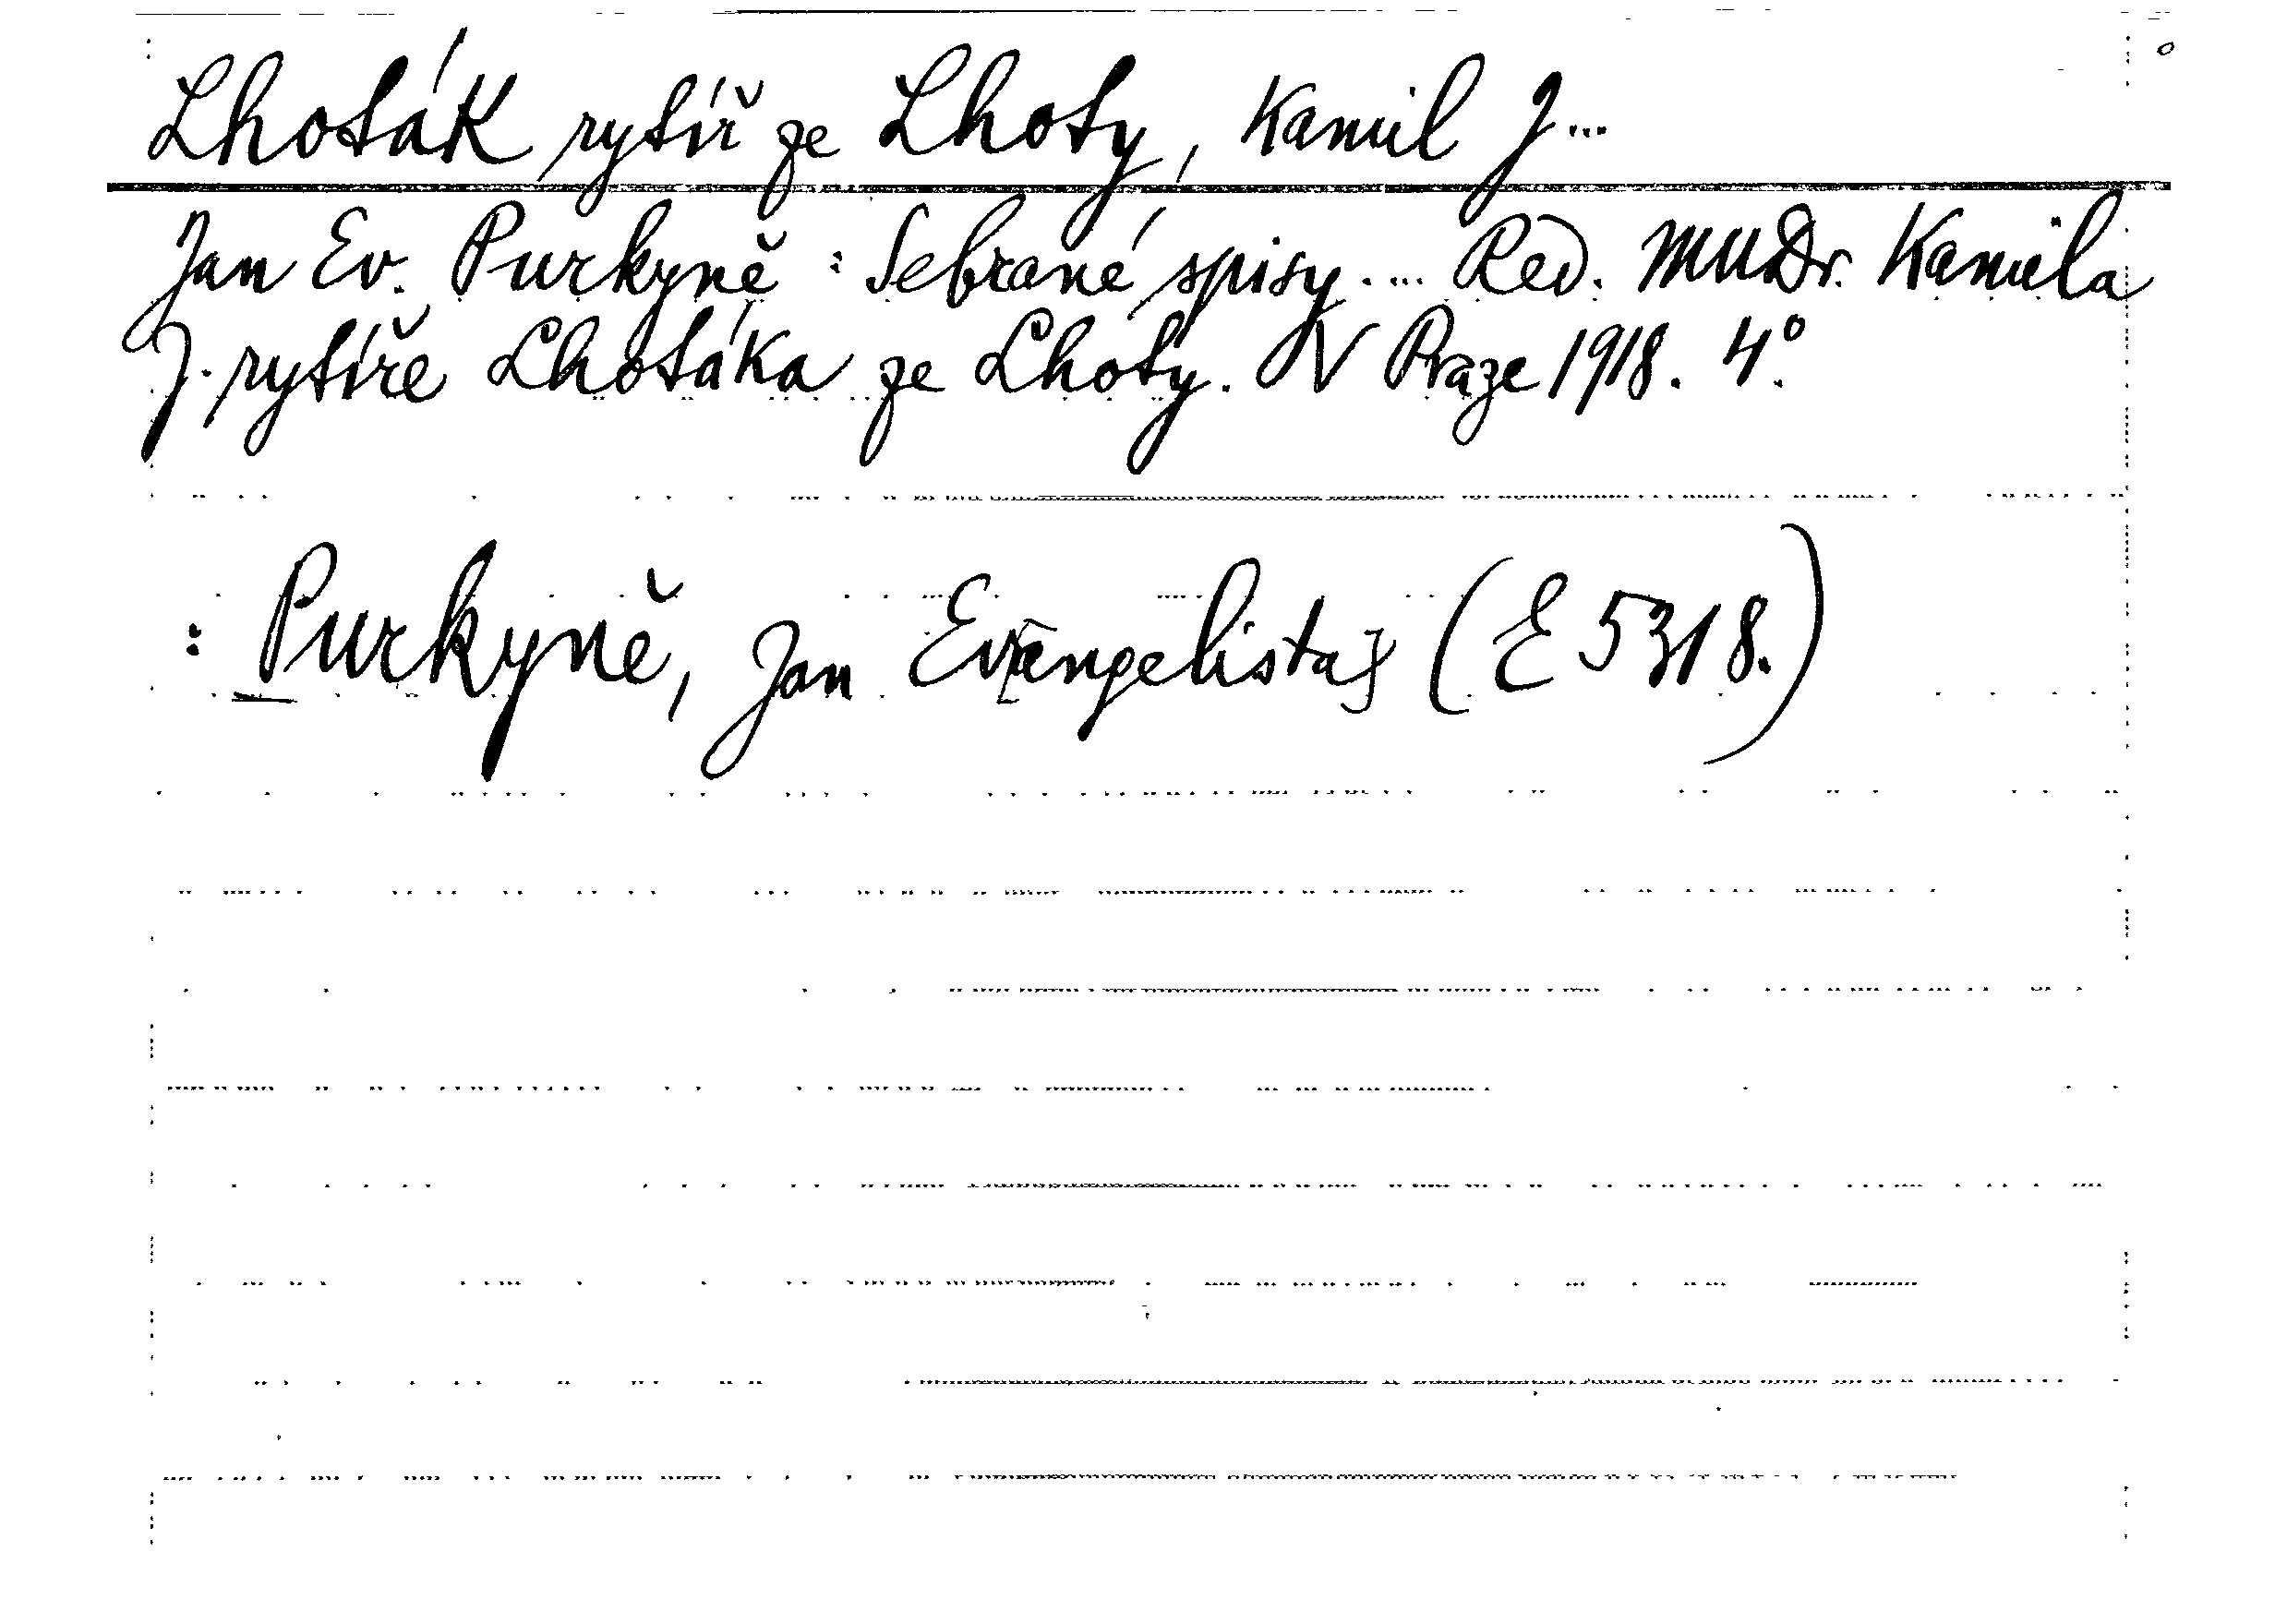 Lhoták rytíř ze Lhoty, Kamil J...
Jan Ev. Purkyně: Sebrané spisy.... Red. MUDr. Kamila
J. rytíře Lhotáka ze Lhoty. V Praze 1918. 4°.
: Purkyně, Jan Ev[angelista] (E 5318.)